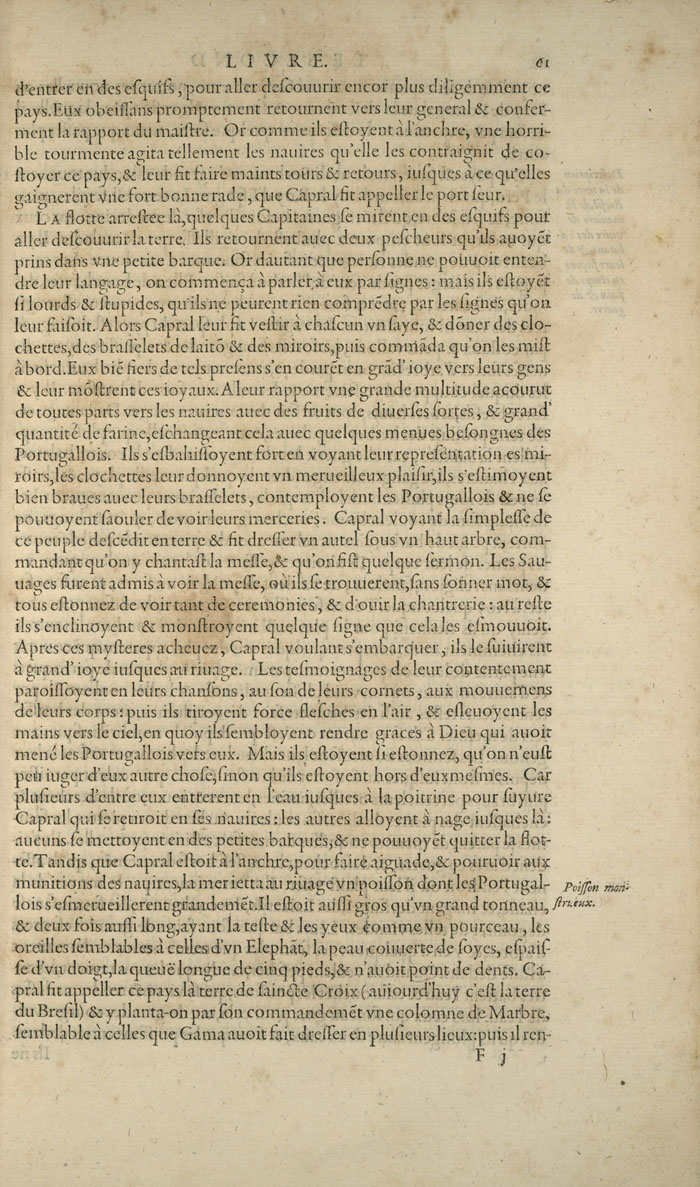 LIVRE. 61
d'entrer en des eſquifs, pour aller deſcouurir encor plus diligemment ce
pays. Eux obeiſſans promptement retournent vers leur general & confer-
ment la rapport du maiſtre. Or comme ils eſtoyent à l'anchre, vne horri-
ble tourmente agita tellement les nauires qu'elle les contraignit de co-
ſtoyer ce pays, & leur fit faire maints tours & retours, iuſques à ce qu'elles
gaignerent vne fort bonne rade, que Capral fit appeller le port ſeur.
LA flotte arreſtee là, quelques Capitaines ſe mirent en des eſquifs pour
aller deſcouurir la terre. Ils retournent auec deux peſcheurs qu'ils auoyēt
prins dans vne petite barque. Or dautant que perſonne ne pouuoit enten-
dre leur langage, on commença à parler à eux par ſignes : mais ils eſtoyēt
ſi lourds & ſtupides, qu'ils ne peurent rien comprēdre par les ſignes qu'on
leur faiſoit. Alors Capral leur fit veſtir à chaſcun vn ſaye, & dōner des clo-
chettes, des braſſelets de laitō & des miroirs, puis commāda qu'on les miſt
à bord. Eux biē fiers de tels preſens s'en courēt en grād' ioye vers leurs gens
& leur mōſtrent ces ioyaux. A leur rapport vne grande multitude acourut
de toutes parts vers les nauires auec des fruits de diuerſes ſortes, & grand'
quantité de farine, eſchangeant cela auec quelques menues beſongnes des
Portugallois. Ils s'eſbahiſſoyent fort en voyant leur repreſentation es mi-
roirs, les clochettes leur donnoyent vn merueilleux plaiſir, ils s'eſtimoyent
bien braues auec leurs braſſelets, contemployent les Portugallois & ne ſe
pouuoyent ſaouler de voir leurs merceries. Capral voyant la ſimpleſſe de
ce peuple deſcēdit en terre & fit dreſſer vn autel ſous vn haut arbre, com-
mandant qu'on y chantaſt la meſſe, & qu'on fiſt quelque ſermon. Les Sau-
uages furent admis à voir la meſſe, où ils ſe trouuerent, ſans ſonner mot, &
tous eſtonnez de voir tant de ceremonies, & d'ouir la chantrerie : au reſte
ils s'enclinoyent & monſtroyent quelque ſigne que cela les eſmouuoit.
Apres ces myſteres acheuez, Capral voulant s'embarquer, ils le ſuiuirent
à grand' ioye iuſques au riuage. Les teſmoignages de leur contentement
paroiſſoyent en leurs chanſons, au ſon de leurs cornets, aux mouuemens
de leurs corps : puis ils tiroyent force fleſches en l'air, & eſleuoyent les
mains vers le ciel, en quoy ils ſembloyent rendre graces à Dieu qui auoit
mené les Portugallois vers eux. Mais ils eſtoyent ſi eſtonnez, qu'on n'euſt
peu iuger d'eux autre choſe, ſinon qu'ils eſtoyent hors d'eux meſmes. Car
pluſieurs d'entre eux entrerent en l'eau iuſques à la poitrine pour ſuyure
Capral qui ſe retiroit en ſes nauires : les autres alloyent à nage iuſques là :
aucuns ſe mettoyent en des petites barques, & ne pouuoyēt quitter la flot-
te. Tandis que Capral eſtoit à l'anchre, pour faire aiguade, & pouruoir aux
munitions des nauires, la mer ietta au riuage vn poiſſon dont les Portugal-
lois s'eſmerueillerent grandemēt. Il eſtoit auſſi gros qu'vn grand tonneau,
Poiſſon mon-
ſtrueux.
& deux fois auſſi long, ayant la teſte & les yeux comme vn pourceau, les
oreilles ſemblables à celles d'vn Elephāt, la peau couuerte de ſoyes, eſpaiſ-
ſe d'vn doigt, la queuë longue de cinq pieds, & n'auoit point de dents. Ca-
pral fit appeller ce pays là terre de ſaincte Croix (auiourd'huy c'eſt la terre
du Breſil) & y planta-on par ſon commandemēt vne colomne de Marbre,
ſemblable à celles que Gama auoit fait dreſſer en pluſieurs lieux: puis il ren-
F j